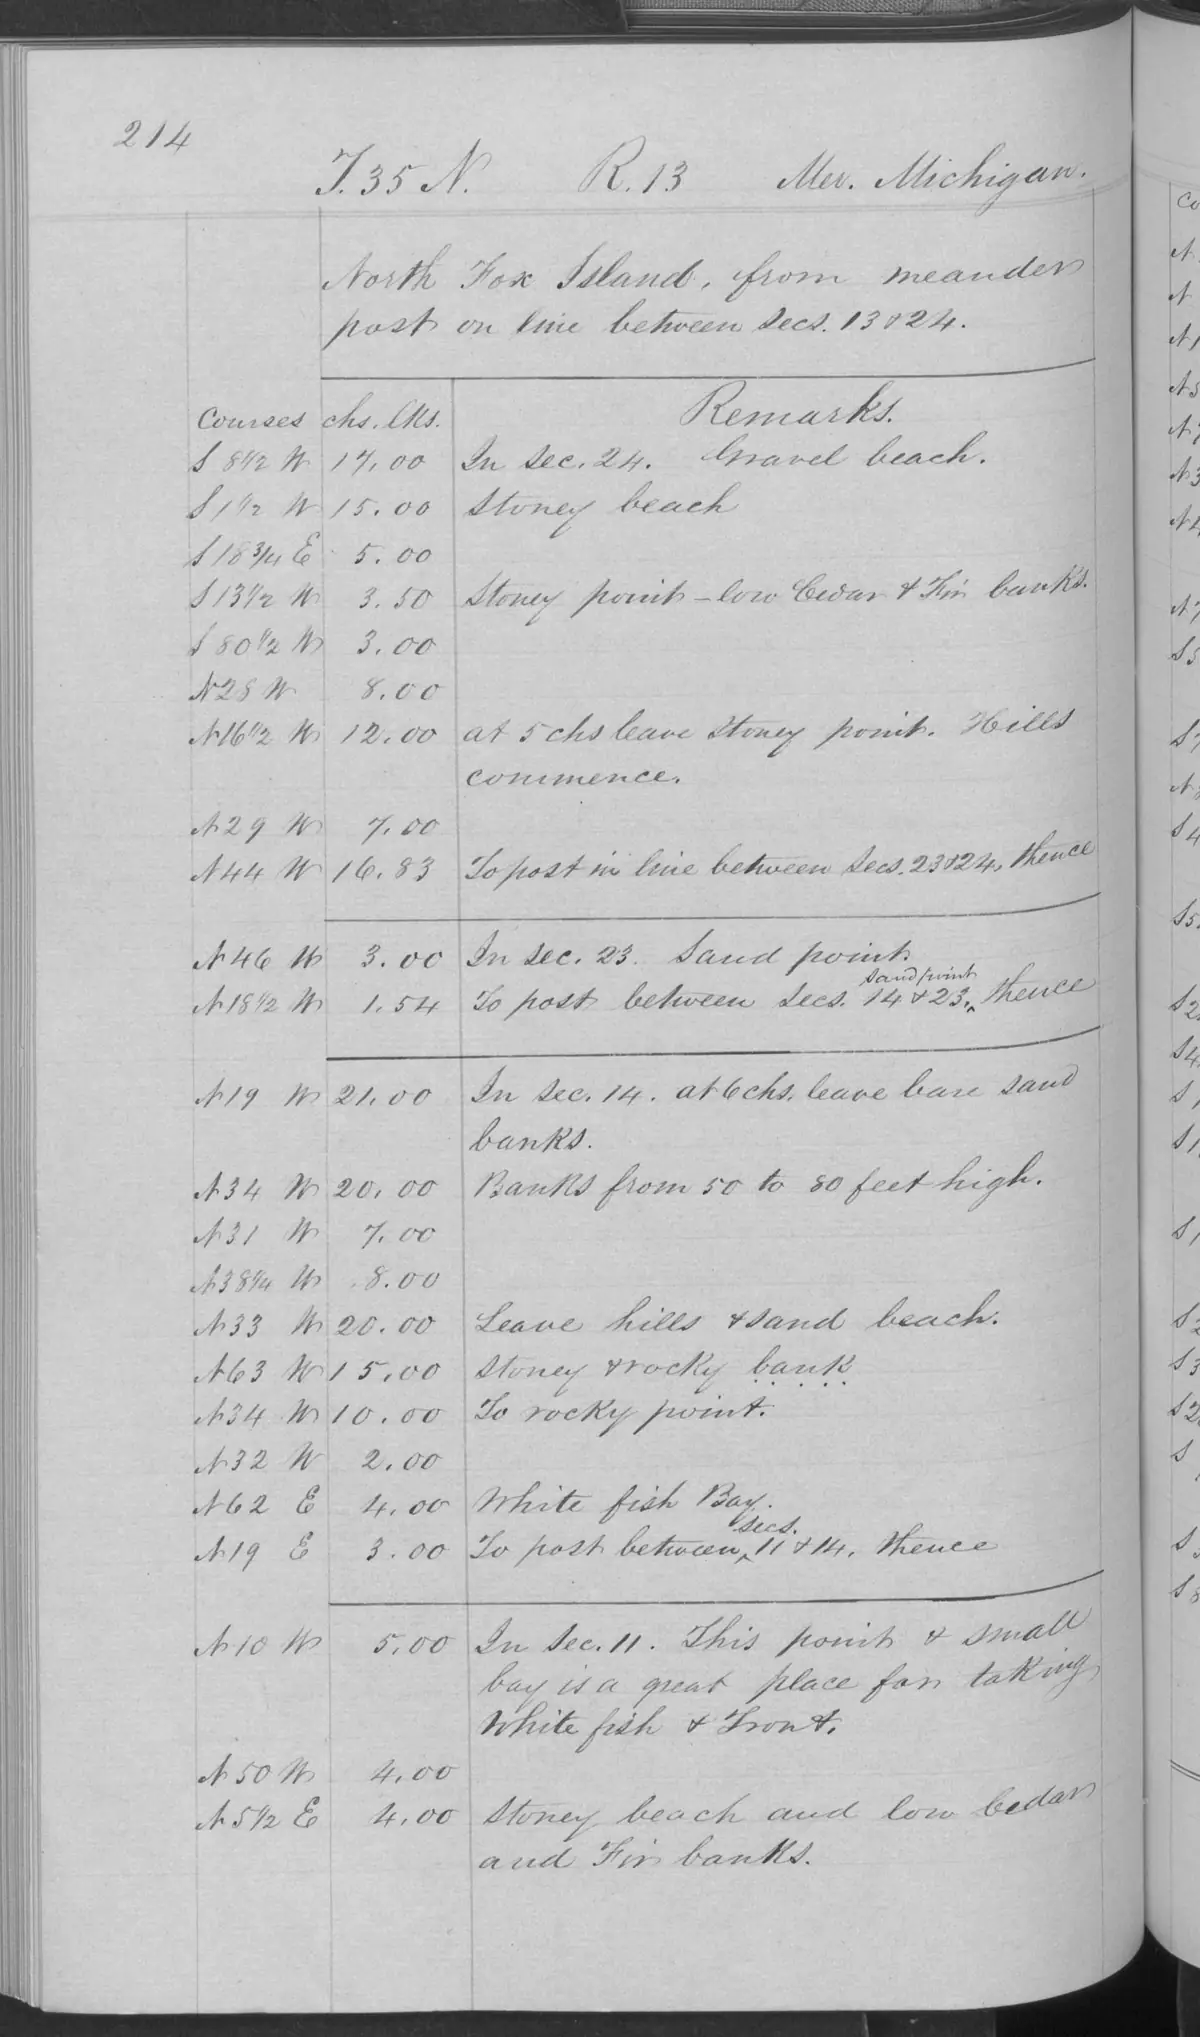 214
T. 35 N. R. 13 Mer. Michigan.
North Fox Island, from meander
post on line between Secs. 13 & 24.
Courses chs. lks. Remarks.
S 8 1/2 W 17.00 In Sec. 24. Gravel beach.
S 1 1/2 W 15.00 Stoney beach
S 18 3/4 E 5.00
S 13 1/2 W 3.50 Stoney point - low Cedar & Fir banks.
S 80 1/2 W 3.00
N 28 W 8.00
N 16 1/2 W 12.00 at 5 chs leave Stoney point. Hills
commence.
N 29 W 7.00
N 44 W 16.83 To post in line between Secs. 23 & 24, thence
N 46 W 3.00 In Sec. 23. Sand point
sand point
N 18 1/2 W 1.54 To post between Secs. 14 & 23.^ thence
N 19 W 21.00 In Sec. 14. at 6 chs. leave bare sand
banks.
N 34 W 20.00 Banks from 50 to 80 feet high.
N 31 W 7.00
N 38 1/4 W 8.00
N 33 W 20.00 Leave hills & sand beach.
N 63 W 15.00 Stoney & rocky bank
N 34 W 10.00 To rocky point.
N 32 W 2.00
N 62 E 4.00 White fish Bay.
secs.
N 19 E 3.00 To post between^ 11 & 14, thence
N 10 W 5.00 In Sec. 11. This point & small
bay is a great place for taking
White fish & Trout.
N 50 W 4.00
N 5 1/2 E 4.00 Stoney beach and low Cedar
and Fir banks.